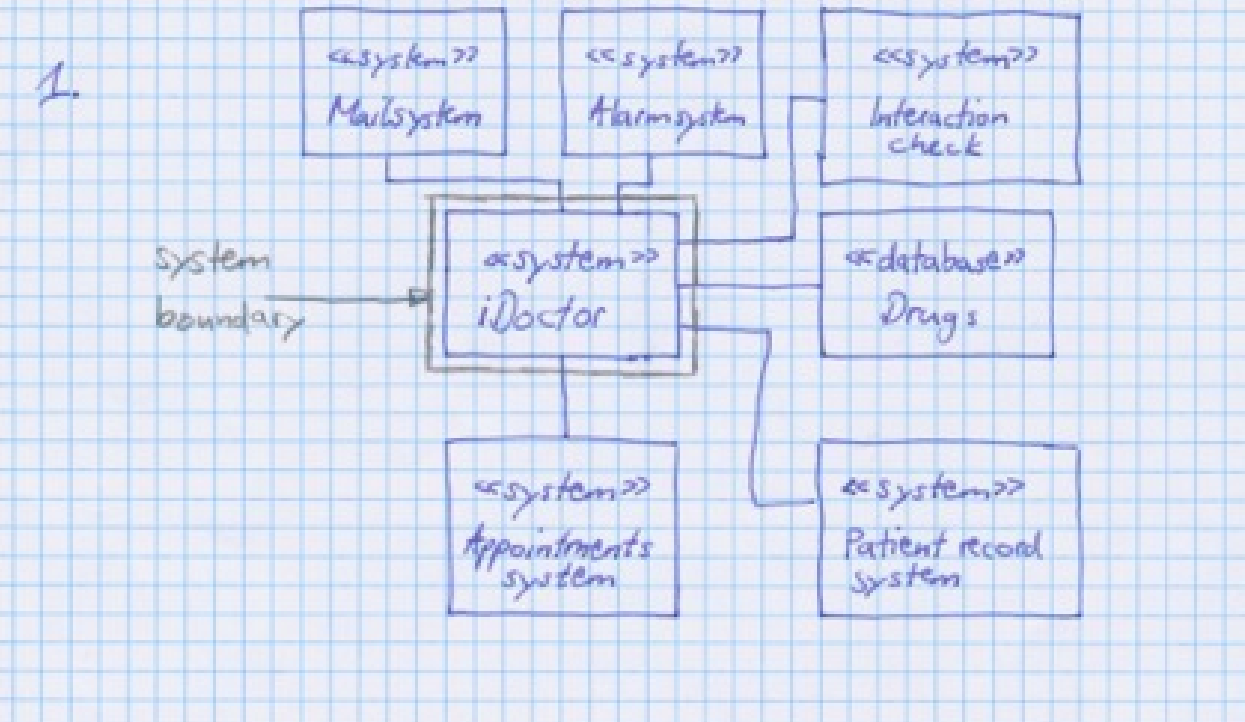 1.
<<system>>
Mailsystem
<<system>>
Alarmsystem
<<system>>
Interaction
check
system
boundary
<<system>>
iDoctor
<<database>>
Drugs
<<system>>
Appointments
system
<<system>>
Patient record
system